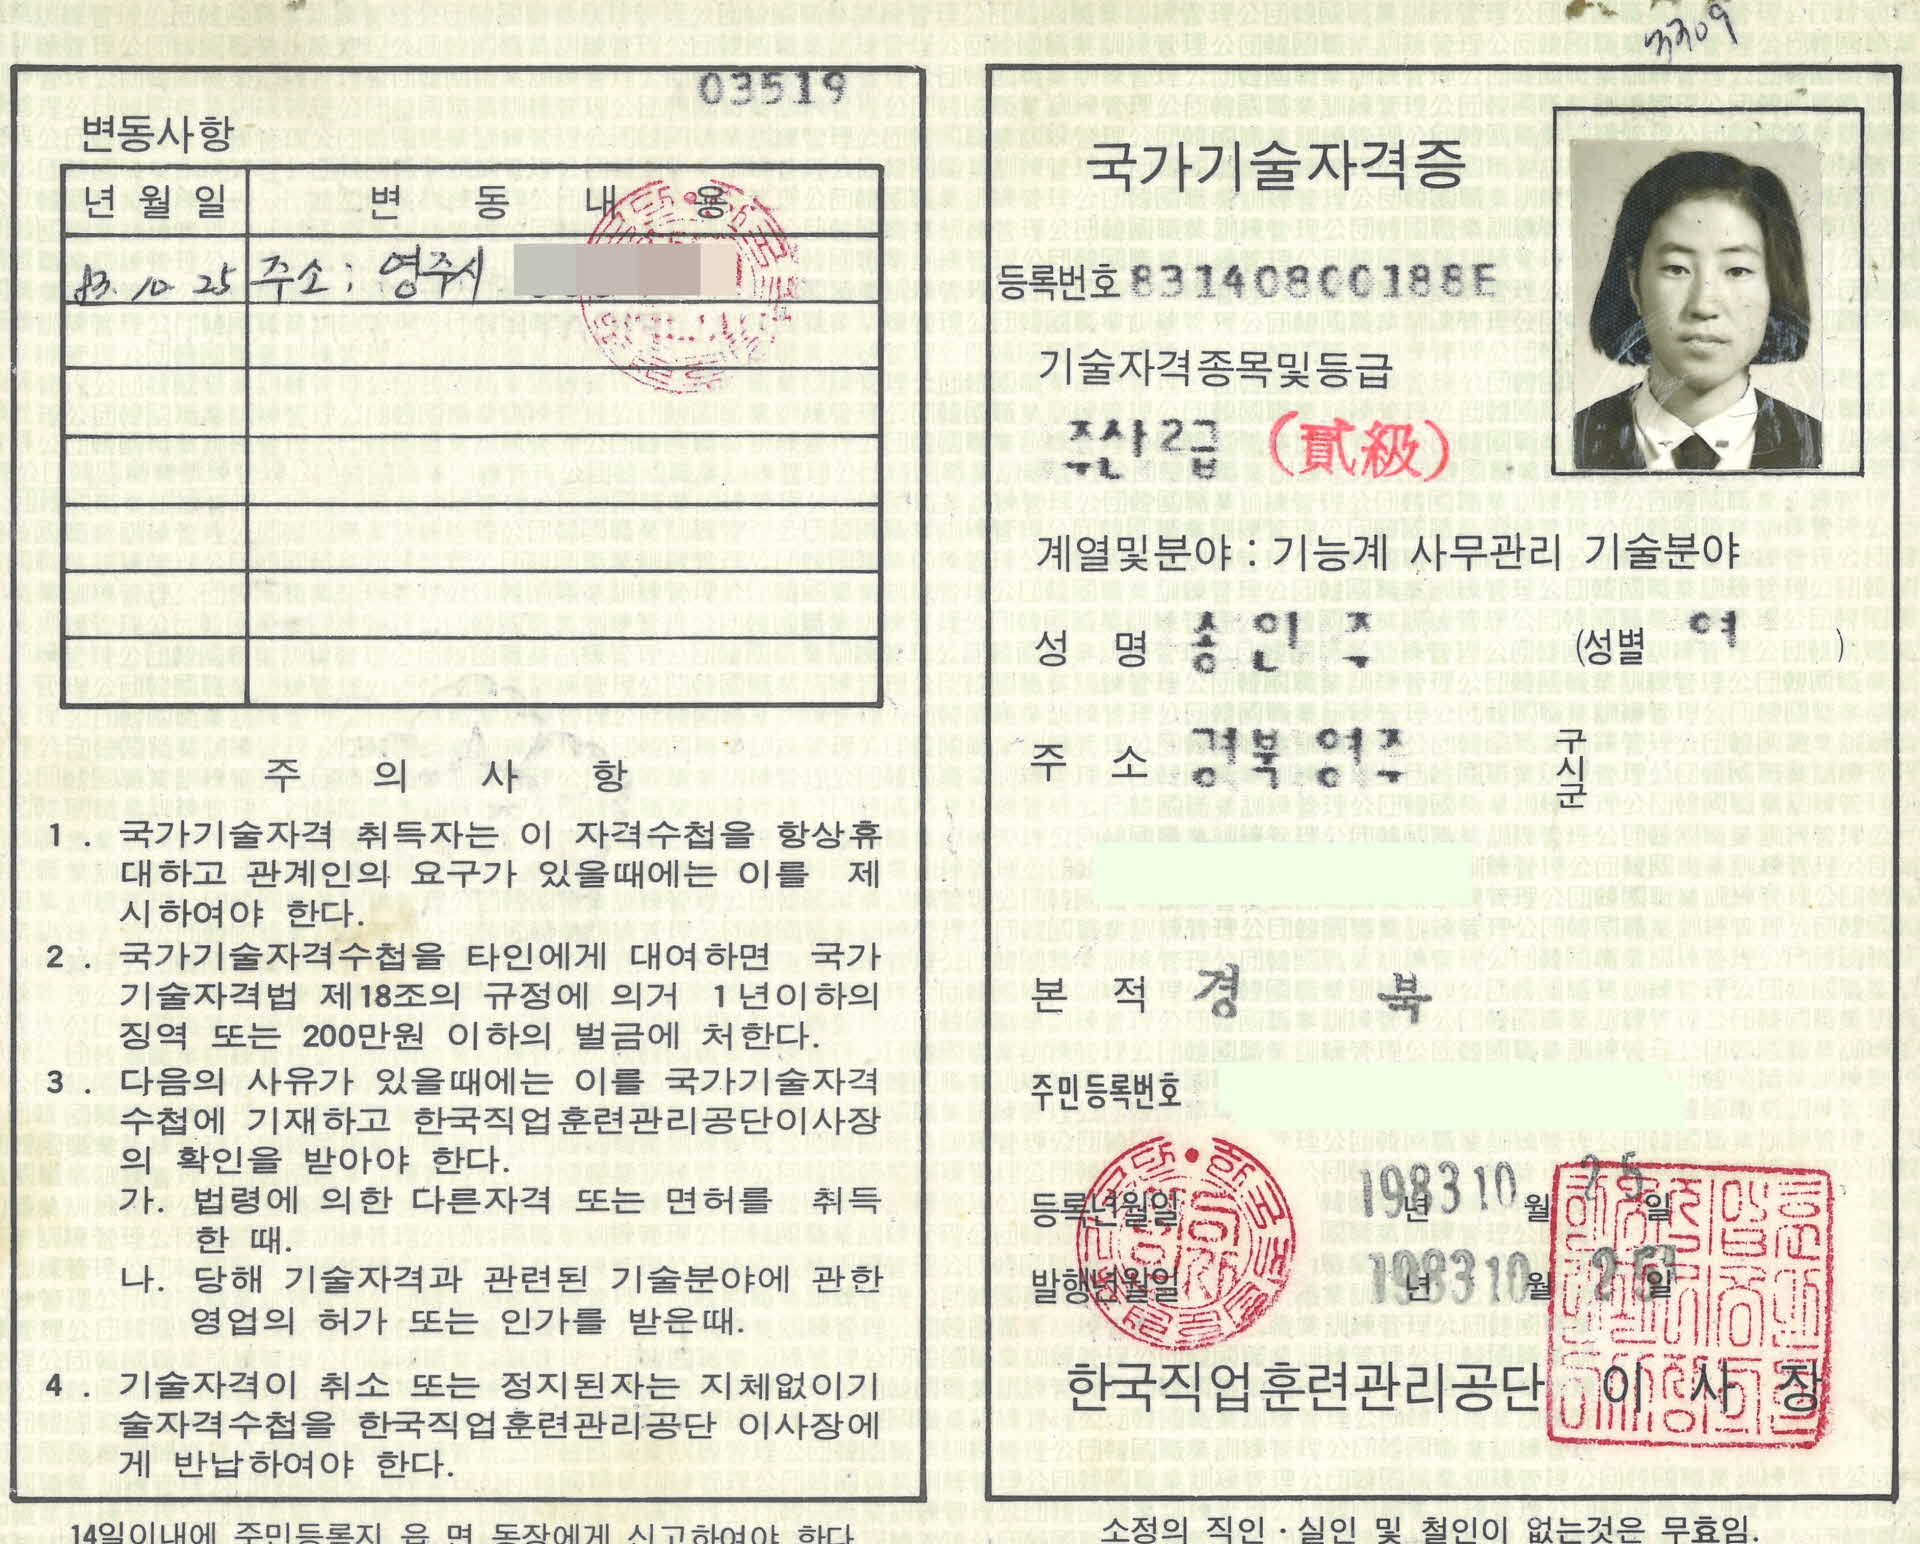 03519
변동사항
년 월 일 변 동 내 용
83. 10. 25 주소: 영주시
주 의 사 항
1. 국가기술자격 취득자는 이 자격수첩을 항상휴
대하고 관계인의 요구가 있을때에는 이를 제
시하여야 한다.
2. 국가기술자격수첩을 타인에게 대여하면 국가
기술자격법 제18조의 규정에 의거 1년이하의
징역 또는 200만원 이하의 벌금에 처한다.
3. 다음의 사유가 있을때에는 이를 국가기술자격
수첩에 기재하고 한국직업훈련관리공단이사장
의 확인을 받아야 한다.
가. 법령에 의한 다른자격 또는 면허를 취득
한 때.
나. 당해 기술자격과 관련된 기술분야에 관한
영업의 허가 또는 인가를 받은때.
4. 기술자격이 취소 또는 정지된자는 지체없이기
술자격수첩을 한국직업훈련관리공단 이사장에
게 반납하여야 한다.
14일이내에 주민등록지 읍 면 동장에게 신고하여야 한다
3309
국가기술자격증
등록번호 83140800188E
기술자격종목및등급
주산2급 (貳級)
계열및분야 : 기능계 사무관리 기술분야
성 명 송인주 (성별 여 )
주 소 경북영주 구시군
본 적 경 북
주민등록번호
등록년월일 1983년 10월 25일
발행년월일 1983년 10월 25일
한국직업훈련관리공단 이 사 장
소정의 직인·실인 및 철인이 없는것은 무효임.